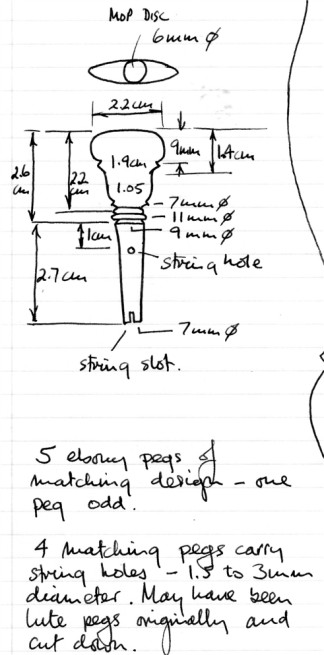 MOP DISC
6mm ⌀
2.2cm
9mm
1.4cm
2.6
cm
2.2
cm
1.9cm
1.05
7mm ⌀
11mm ⌀
9mm ⌀
1cm
string hole
2.7cm
7mm ⌀
string slot.
5 ebony pegs of
matching design - one
peg odd.
4 matching pegs carry
string holes - 1.5 to 3mm
diameter. May have been
lute pegs originally and
cut down.